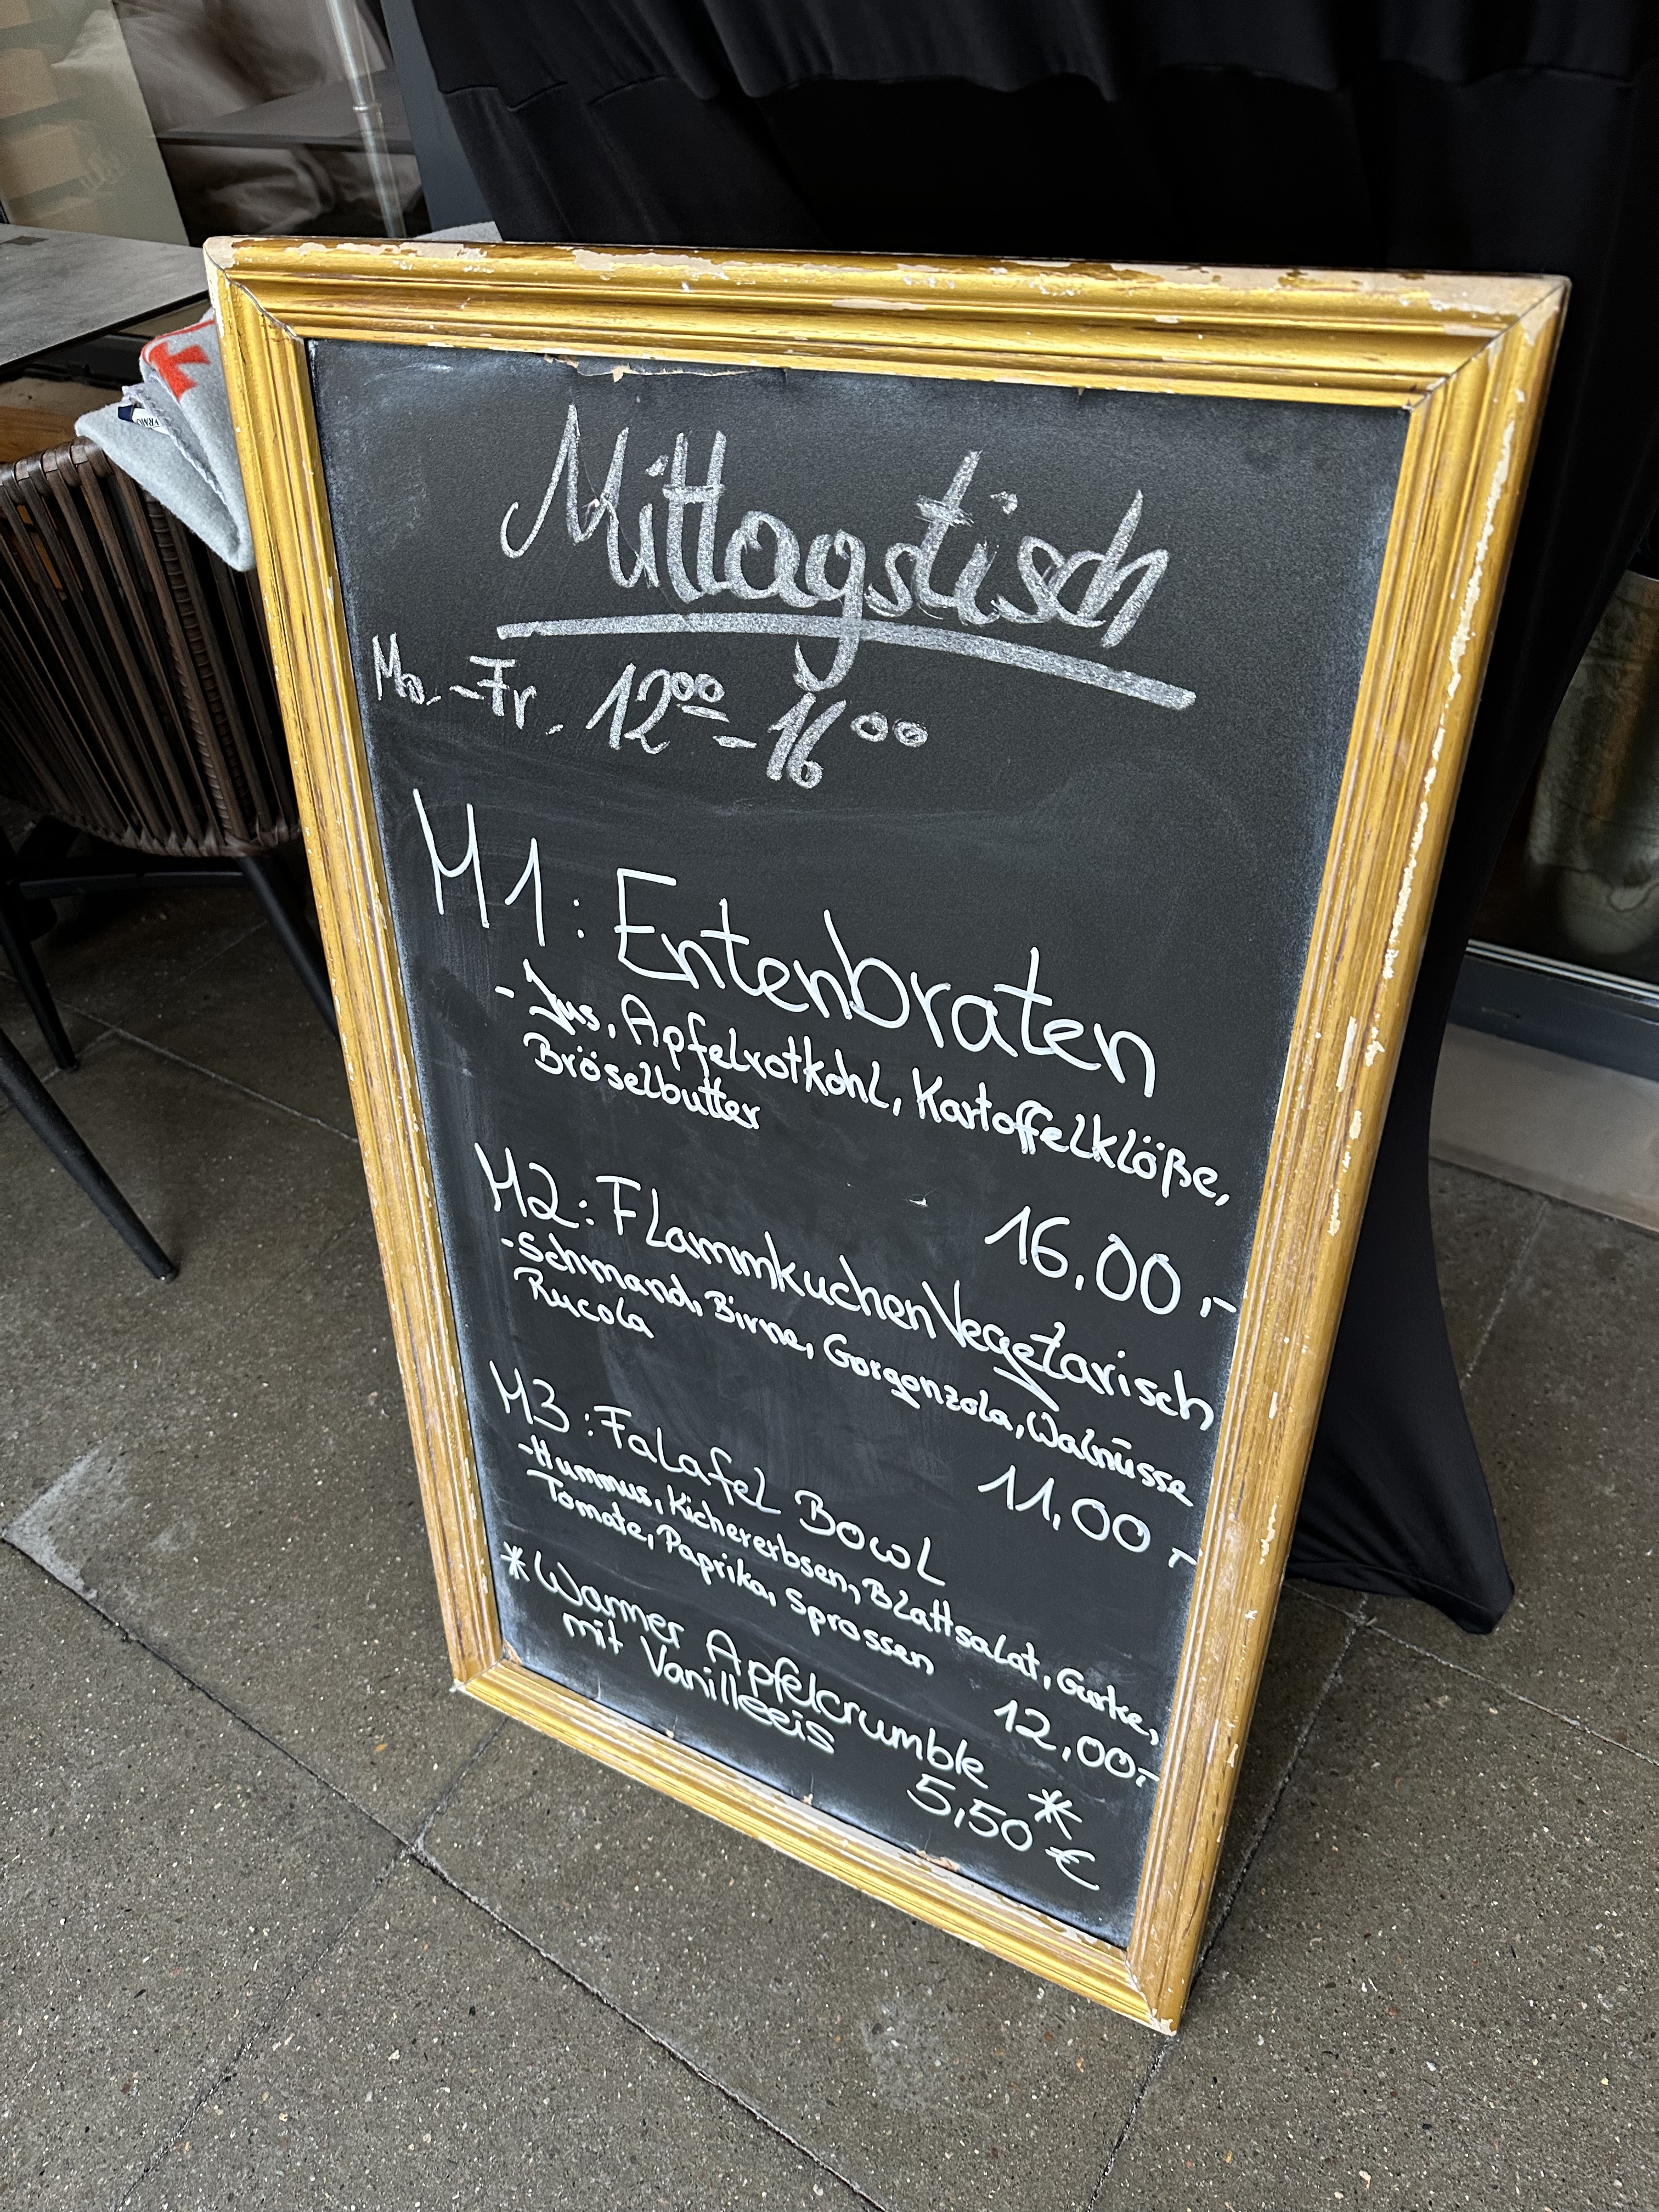 Mittagstisch
Mo. - Fr. 12⁰⁰ - 16⁰⁰
M1: Entenbraten
- Jus, Apfelrotkohl, Kartoffelklöße,
Bröselbutter
16,00,-
M2: Flammkuchen Vegetarisch
- Schmand, Birne, Gorgonzola, Walnüsse
Rucola
11,00,-
M3: Falafel Bowl
- Hummus, Kichererbsen, Blattsalat, Gurke,
Tomate, Paprika, Sprossen
12,00,-
* Warmer Apfelcrumble *
mit Vanilleeis
5,50 €